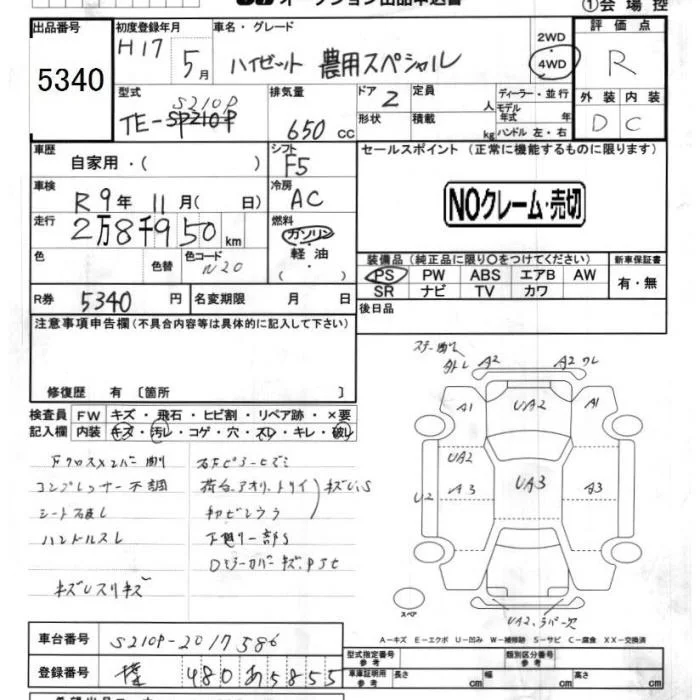 ①会場控
出品番号 5340
初度登録年月 H17 5月
車名・グレード ハイゼット 農用スペシャル
2WD
4WD
評価点 R
外装 内装
D C
型式 TE-S210P
排気量 650 cc
ドア 2
定員 人
形状
積載 kg
ディーラー・並行
モデル年式 年
ハンドル 左・右
車歴 自家用・( )
シフト F5
セールスポイント (正常に機能するものに限ります)
NOクレーム・売切
車検 R9年 11月( 日)
冷房 AC
走行 2万8千950 km
燃料 ガソリン・軽油・( )
色 色替 色コード N20
装備品 (純正品に限り○をつけてください)
PS PW ABS エアB AW
SR ナビ TV カワ
新車保証書
有・無
R券 5340 円
名変期限 月 日
後日品
注意事項申告欄 (不具合内容等は具体的に記入して下さい)
修復歴 有 〔箇所 〕
検査員記入欄
FW キズ・飛石・ヒビ割・リペア跡・×要
内装 キズ・汚レ・コゲ・穴・スレ・キレ・破レ
コンプレッサー不調
ハンドルスレ
荷台、アオリ、トリイ キズU、S
下廻り一部S
キズUスリキズ
A2 A2 ワレ
A1 UA2 A1
UA2
U2 A3 UA3 A3
スペア
A-キズ E-エクボ U-凹み W-補修跡 S-サビ C-腐食 XX-交換済
車台番号 S210P-2017586
登録番号 480 あ5855
型式指定番号 参考
類別区分番号 参考
車庫証明用 参考 長さ cm 幅 cm 高さ cm